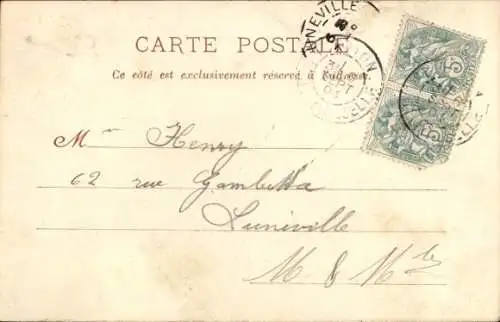 CARTE POSTALE
Ce côté est exclusivement réservé à l'adresse
Mr Henry
62 rue Gambetta
Lunéville
M & Mlle
NEVILLE
5
5